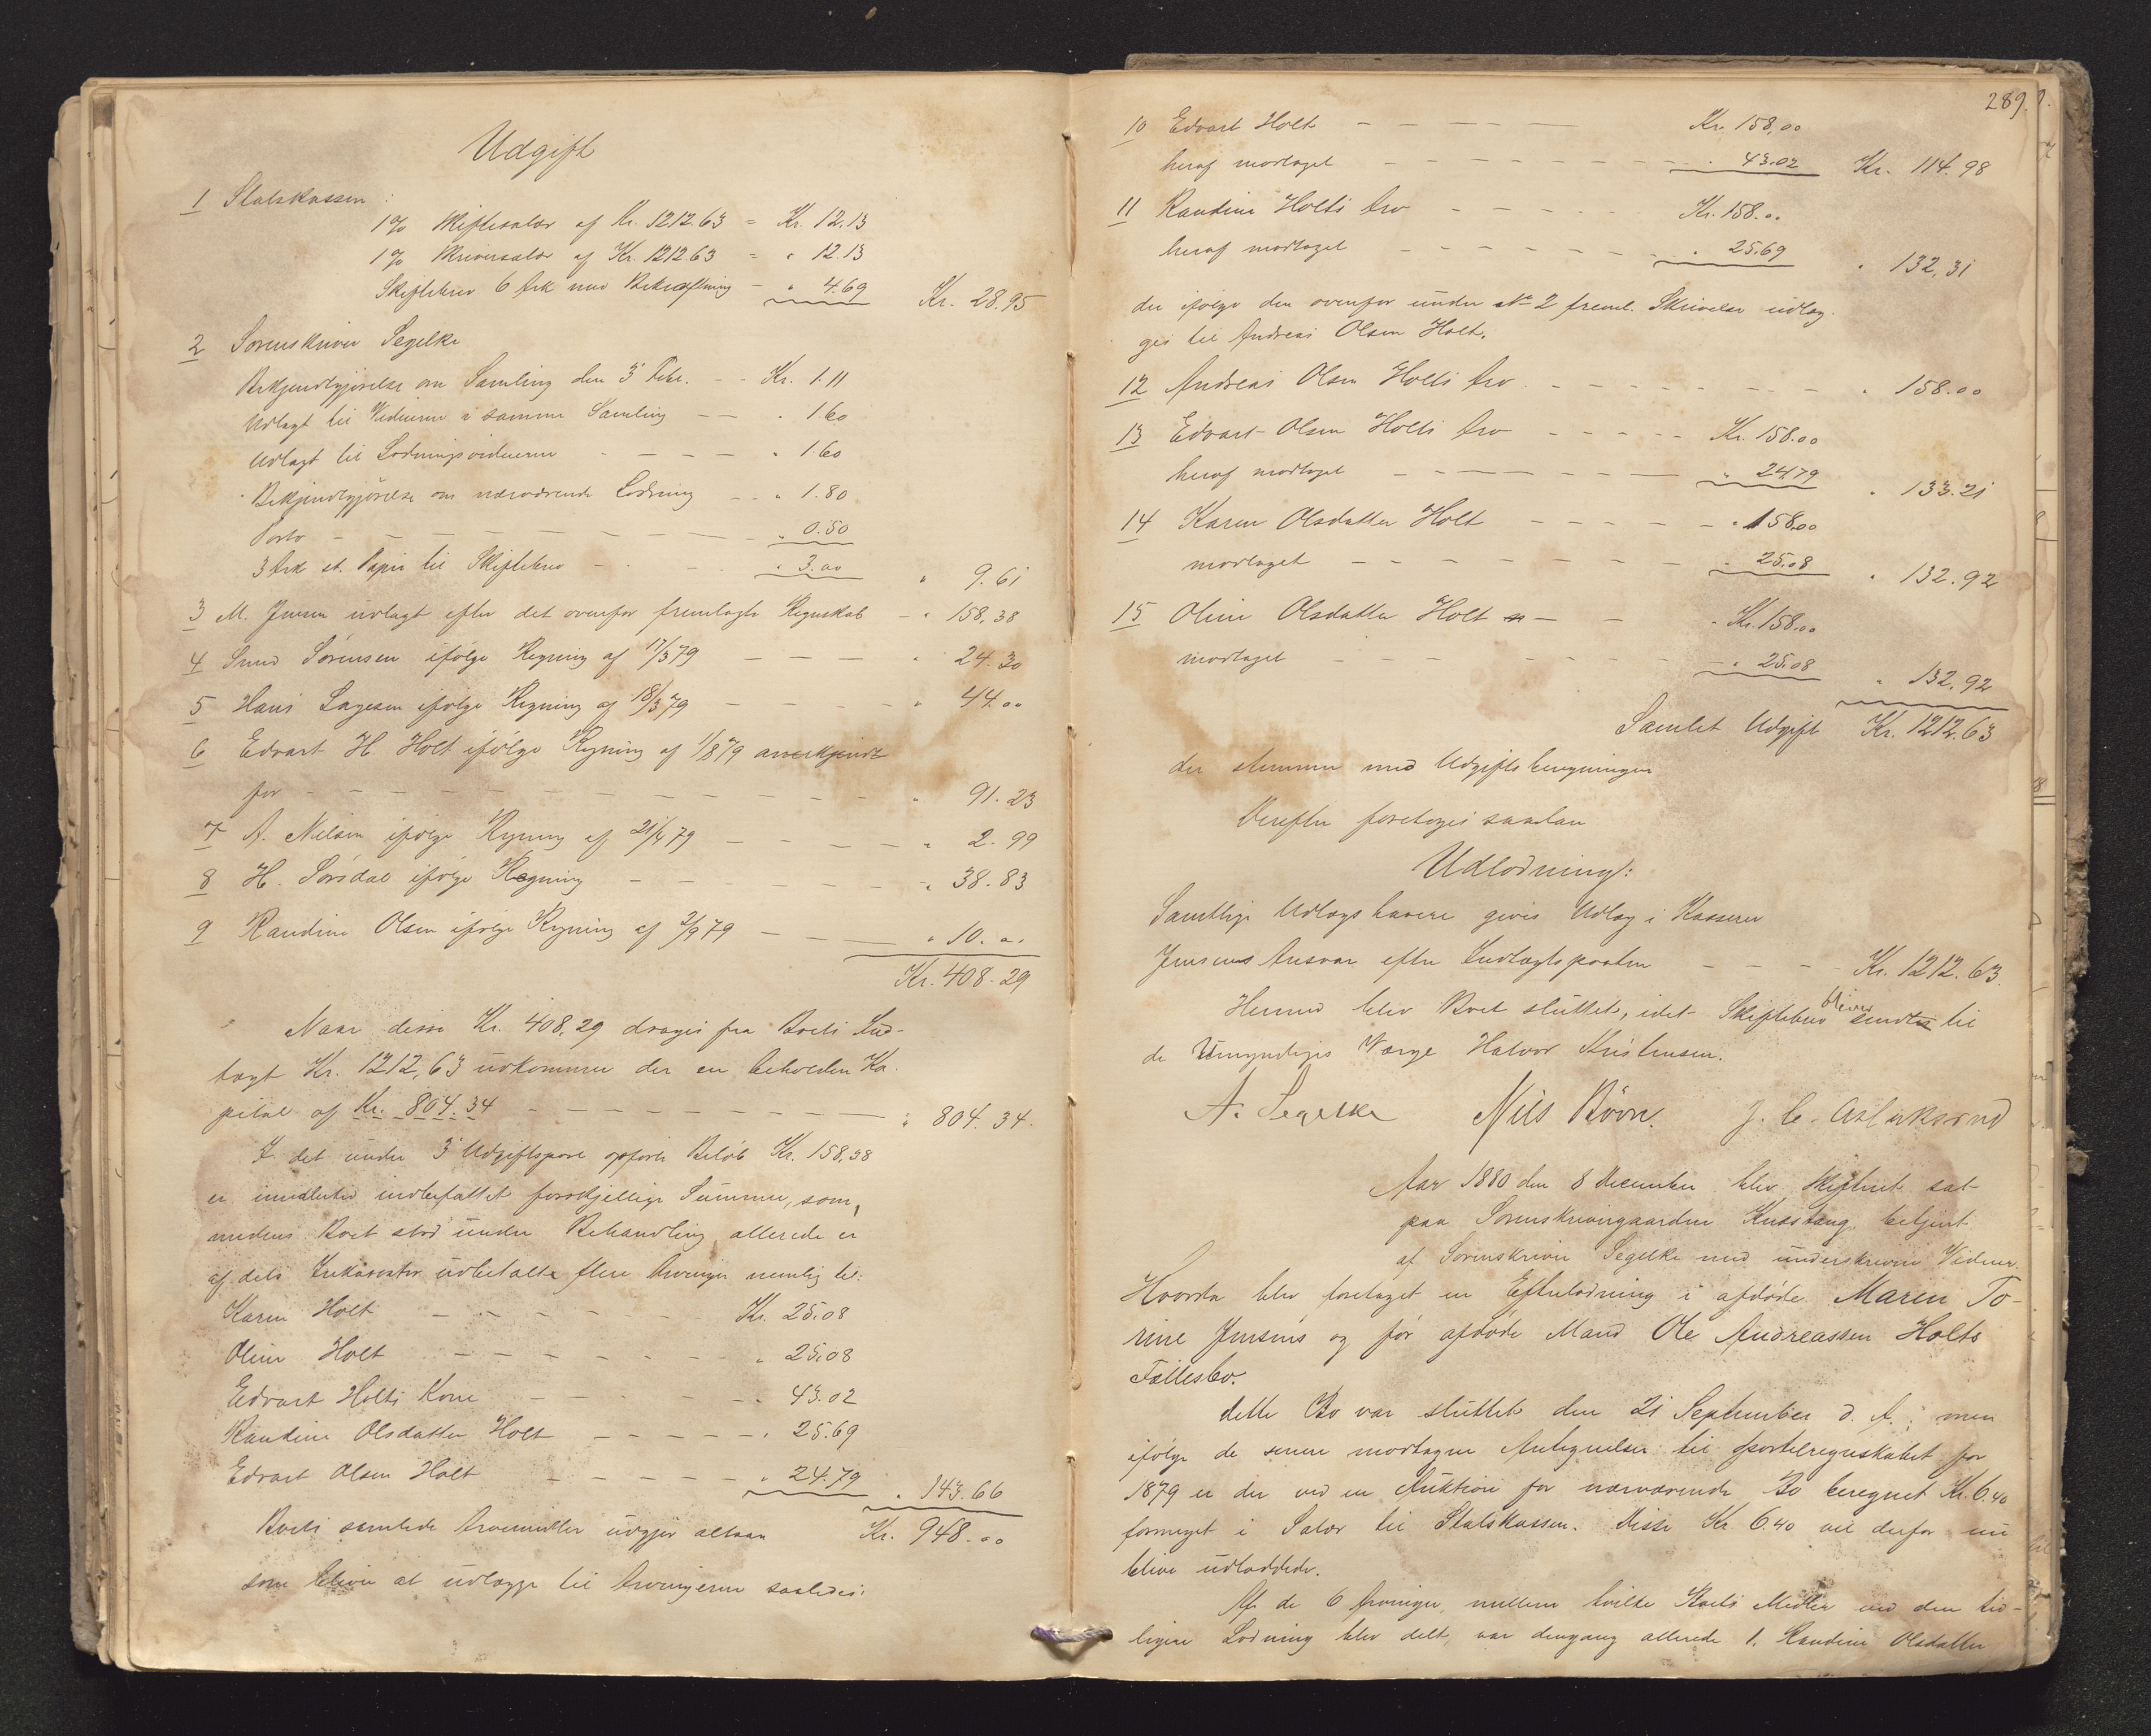 Udgift
1 Statskassen :
1 % Skiftesalær af Kr. 1212.63 = Kr. 12.13
1 % Skriversalær af Kr. 1212 63 = " 12.13
Skiftebrev 6 Ark med Bekræftning - " 4.69 Kr. 28.95
2 Sorenskriver Segelke
Bekjendtgjörelse om Samling den 3 Febr. - - Kr. 1.11
Udlagt til Vidnerne i samme Samling - - " 1.60
Udlagt til Lodningsvidnerne - - - - " 1.60
Bekjendtgjörelse om nærværende Lodning - - " 1.80
Porto - - - - - - - - " 0.50
3 Ark st. Papir til Skiftebrev - - - " 3.00 " 9.61
3 M. Jensen udlagt efter det ovenfor fremlagte Regnskab - " 158,38
4 Sund Sörensen ifölge Regning af 17/3 79 - - - " 24.30
5 Hans Lagesen ifölge Regning af 18/3 79 - - - - " 44.00
6 Edvart H. Holt ifölge Regning af 1/8 79 anerkjendt
for - - - - - - - - - - - - " 91.23
7 A. Nielsen ifölge Regning af 21/4 79 - - - - " 2.99
8 H. Sörsdal ifölge Regning - - - - - - " 38.83
9 Randine Olsen ifölge Regning af 2/9 79 - - - " 10.00
Kr. 408.29
Naar disse Kr. 408,29 drages fra Boets Ind-
tægt Kr. 1212,63 udkommer der en beholden Ka-
pital af Kr. 804.34 - - - - - - - - - " 804.34.
I det under 3 Udgiftspost opförte Belöb Kr. 158,38
er imidlertid indbefattet forskjellige Summer, som,
medens Boet stod under Behandling, allerede er
af dets Inkassator udbetalte flere Arvinger nemlig til:
Karen Holt - - - - - - Kr. 25.08
Oline Holt - - - - - - " 25.08
Edvart Holts Kone - - - - - " 43.02
Randine Olsdatter Holt - - - - - " 25.69
Edvart Olsen Holt - - - - - " 24.79 " 143.66
Boets samlede Arvemidler udgjör altsaa Kr. 948.00
som bliver at udlægge til Arvingerne saaledes:
289.
10 Edvart Holt - - - - - Kr. 158,00
heraf modtaget - - - - - - - " 43.02 Kr. 114.98
11 Randine Holts Arv - - - - - Kr. 158.00
heraf modtaget - - - - - - " 25.69 " 132.31
der ifölge den ovenfor under No 2 freml. Skrivelse udlæg-
ges til Andreas Olsen Holt.
12 Andreas Olsen Holts Arv - - - - - - - " 158.00
13 Edvart Olsen Holts Arv - - - - - Kr. 158.00
heraf modtaget - - - - - - " 24.79 " 133.21
14 Karen Olsdatter Holt - - - - - " 158.00
modtaget - - - - - - - " 25.08 " 132.92
15 Oline Olsdatter Holt - - " Kr. 158.00
modtaget - - - - - - - " 25.08 " 132.92
Samlet Udgift Kr. 1212.63
der stemmer med Udgiftsberegningen
Derefter foretoges saadan
Udlodning:
Samtlige Udlægshavere gives Udlæg i Kasserer
Jensens Ansvar efter Indtægtsposten - - - - Kr. 1212.63.
Hermed blev Boet sluttet, idet Skiftebrev bliver sendt til
de Umyndiges Værge Halvor Kristensen.
A. Segelke Nils Böon. J. C. Aslaksrud
Aar 1880 den 8 December blev Skifteret sat
paa Sorenskrivergaarden Knæstang betjent
af Sorenskriver Segelke med underskrevne Vidner.
Hvorda blev foretaget en Efterlodning i afdöde Maren To-
rine Jensens og för afdöde Mand Ole Andreassen Holts
Fællesbo.
Dette Bo var sluttet den 21 September d. A.; men
ifölge de senere modtagne Antegnelser til Sportelregnskabet for
1879 er der ved en Auktion for nærværende Bo beregnet Kr. 6.40
formeget i Salær til Statskassen. Disse Kr 6.40 vil derfor nu
blive udloddede.
Af de 6 Arvinger, mellem hvilke Boets Midler ved den tid-
ligere Lodning blev delt, var dengang allerede 1. Randine Olsdatter